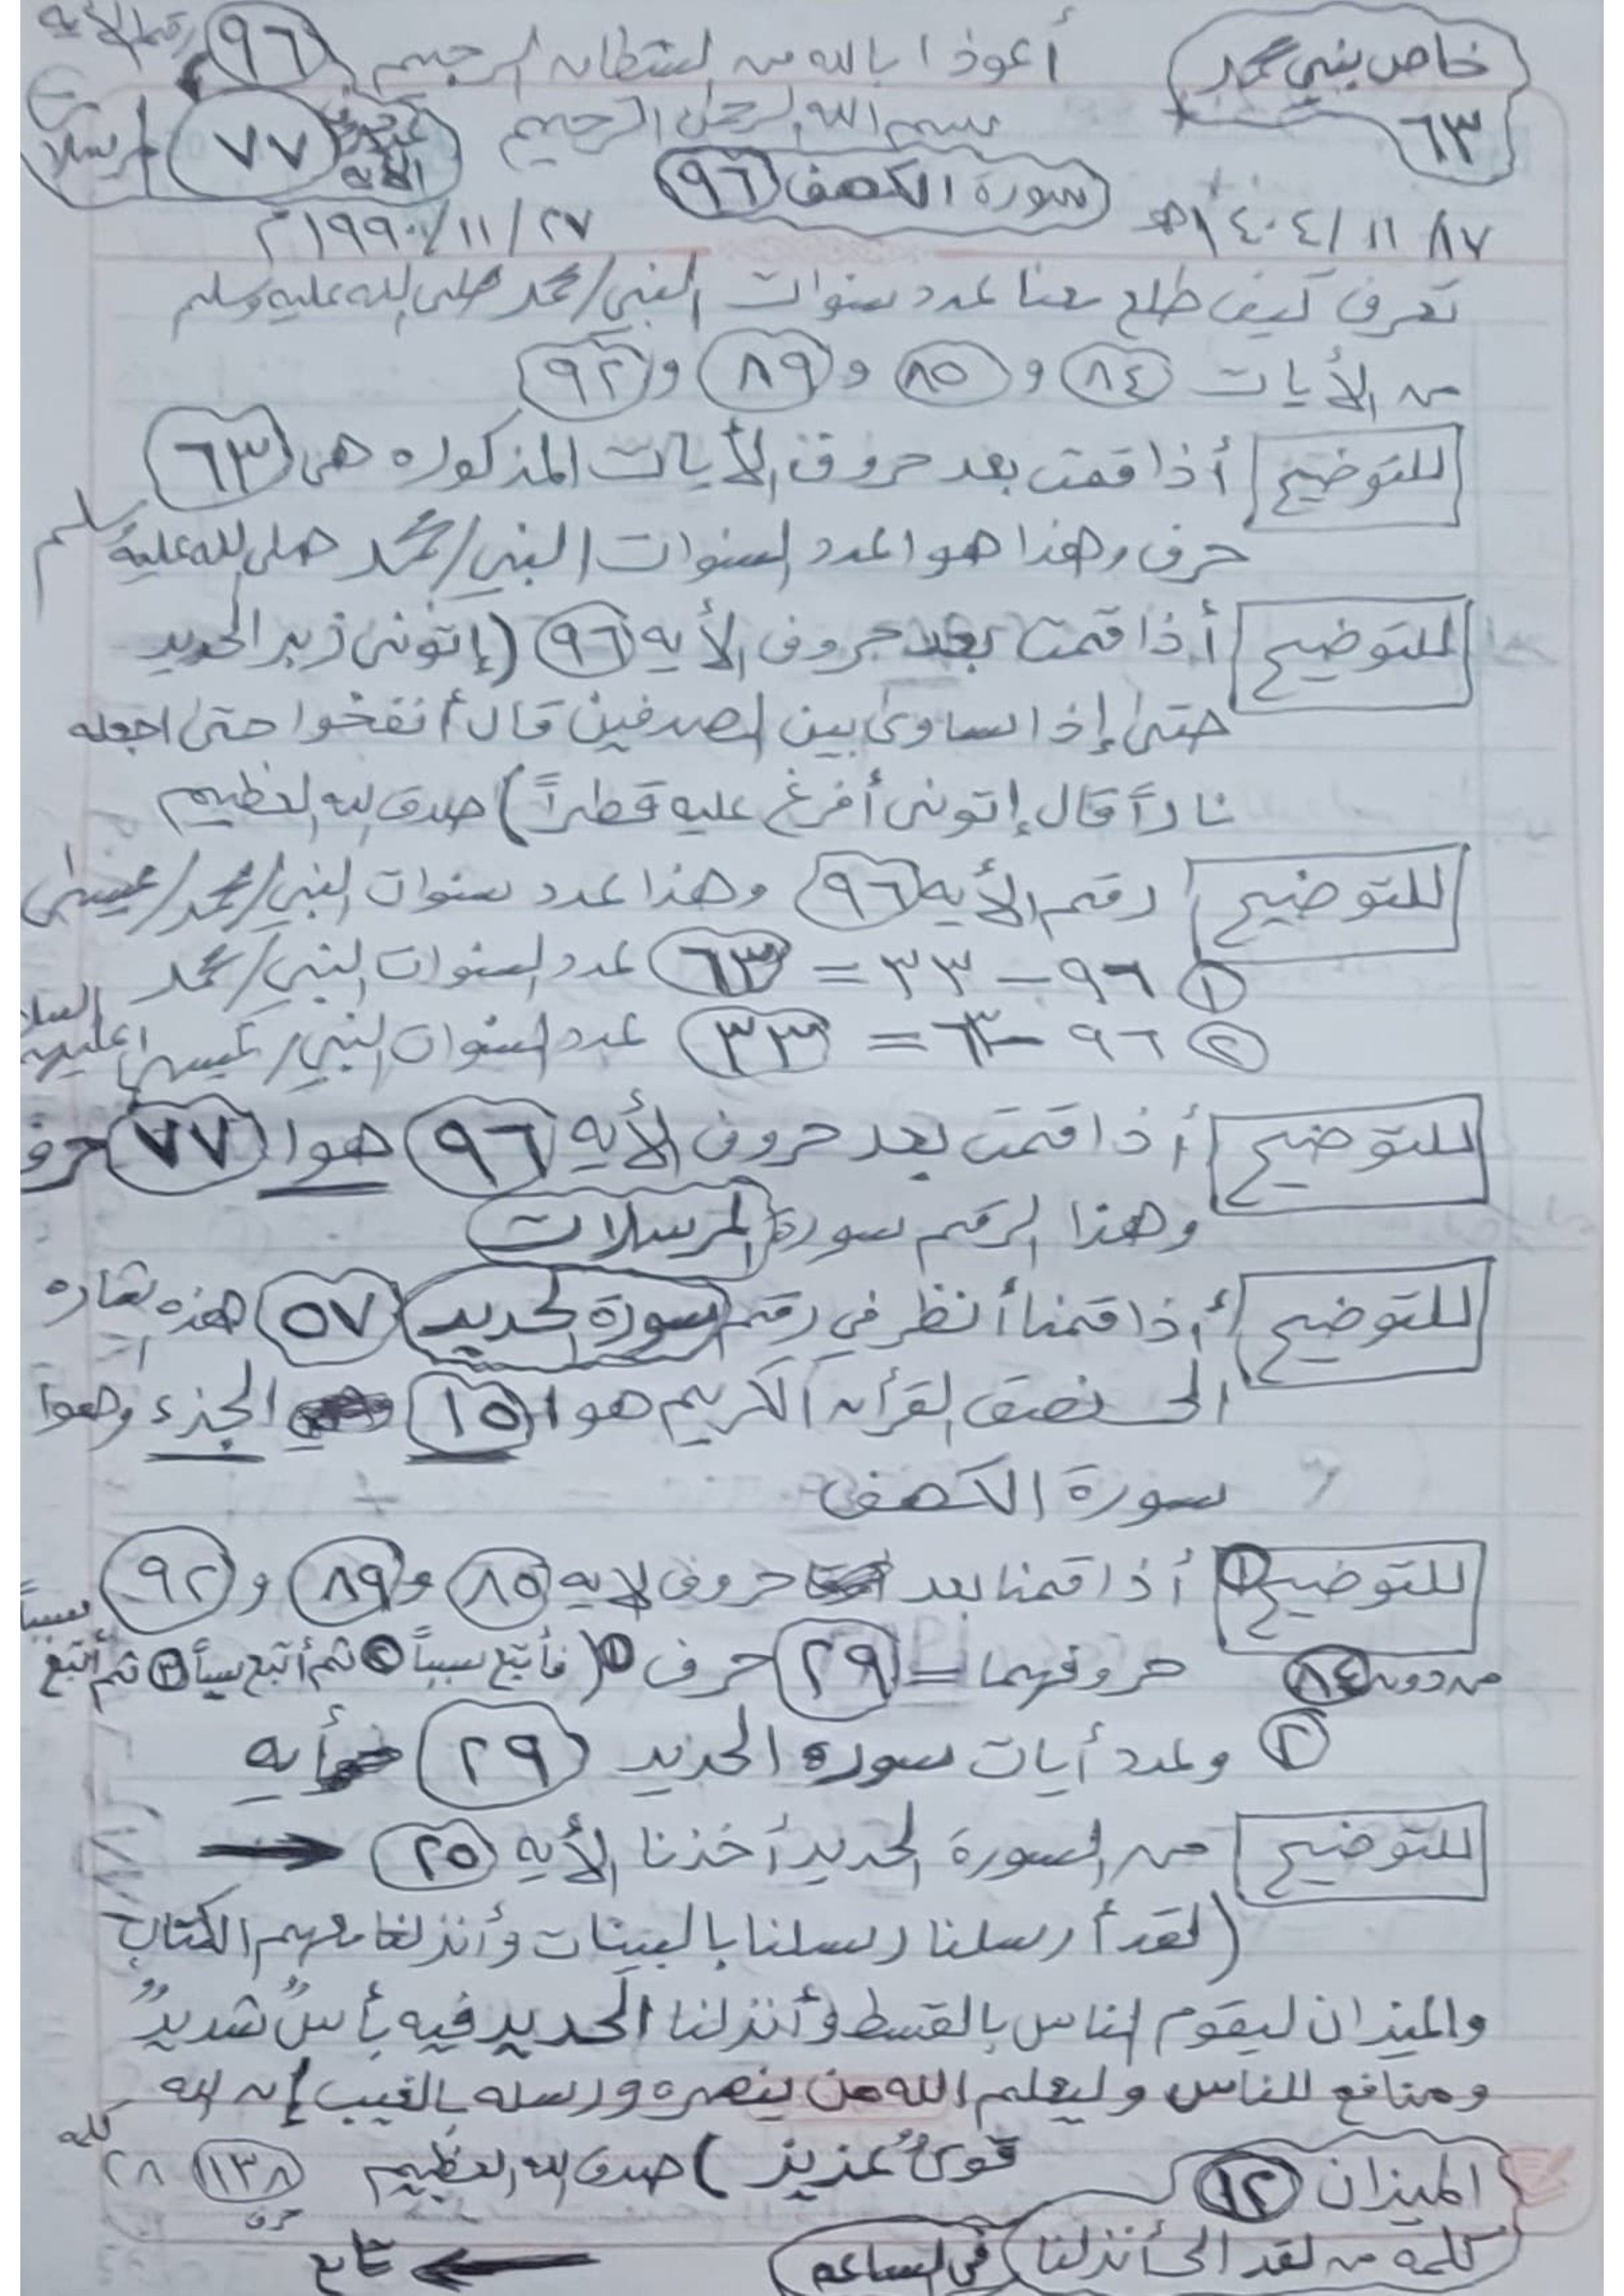 خاص بنبي محمد
٦٣
أعوذا بالله من الشيطان الرجيم
٩٦ رقم الأيه
بسم الله الرحمن الرحيم
عدد حروف الأيه ٧٧
سورة الكهف ٩٦
١٤٠٤/١١/١٧هـ
١٩٩٠/١١/٢٧م
تعرف كيف طلع معنا عدد سنوات النبي/محمد صلى الله عليه وسلم
من الأيات ٨٤ و ٨٥ و ٨٩ و ٩٢
للتوضيح أذا قمت بعد حروف الأيات المذكوره هى ٦٣
حرف وهذا هو العدد السنوات النبي/محمد صلى الله عليه وسلم
للتوضيح أذا قمت بعد حروف الأيه ٩٦ (إتونى زبر الحديد
حتى إذا ساوى بين الصدفين قال أنفخوا حتى اجعله
ناراً قال إتونى أفرغ عليه قطراً) صدق الله العظيم
للتوضيح رقم الأيه ٩٦ وهذا عدد سنوات النبي/محمد/عيسى
١ ٩٦ – ٣٣ = ٦٣ عدد السنوات النبي/محمد
٢ ٩٦ – ٦٣ = ٣٣ عدد السنوات النبي/عيسى عليهم السلا
للتوضيح أذا قمت بعد حروف الأيه ٩٦ هوا ٧٧ حرف
وهذا الرقم سورة المرسلات
للتوضيح أذا قمنا أنظر في رقم سورة الحديد ٥٧ هذه
الى نصف القرأن الكريم هوا ١٥ الجزء وهوا
سورة الكهف
للتوضيح ١ أذا قمنا بعد حروف لايه ٨٥ و ٨٩ و ٩٢
من دون ٨٤ حروفهما = ٢٩ حرف ١ (فأتبع سبباً ٢ ثم أتبع سبباً ٣ ثم أتبع سبباً
٢ وعدد أيات سوره الحديد ٢٩ أيه
للتوضيح من السورة الحديد أخذنا الأيه ٢٥
(لقد أرسلنا رسلنا بالبينات وأنزلنا معهم الكتاب
والميزان ليقوم الناس بالقسط وأنزلنا الحديد فيه بأسٌ شديدٌ
ومنافع للناس وليعلم الله من ينصره ورسله بالغيب إن الله
قوىٌ عزيز) صدق الله العظيم ١٣٨ حرف ٢٨ كلمه
الميزان ١٢
كلمة من لقد الى أنزلنا في الساعه
تابع